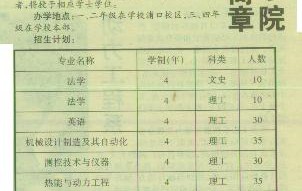 者,将授予相应学士学位。
办学地点:一、二年级在学校浦口校区,三、四年
级在学校本部。
招生计划:
章院
专业名称 学制(年) 科类 人数
法学 4 文史 10
法学 4 理工 10
英语 4 理工 30
机械设计制造及其自动化 4 理工 35
测控技术与仪器 4 理工 30
热能与动力工程 4 理工 35